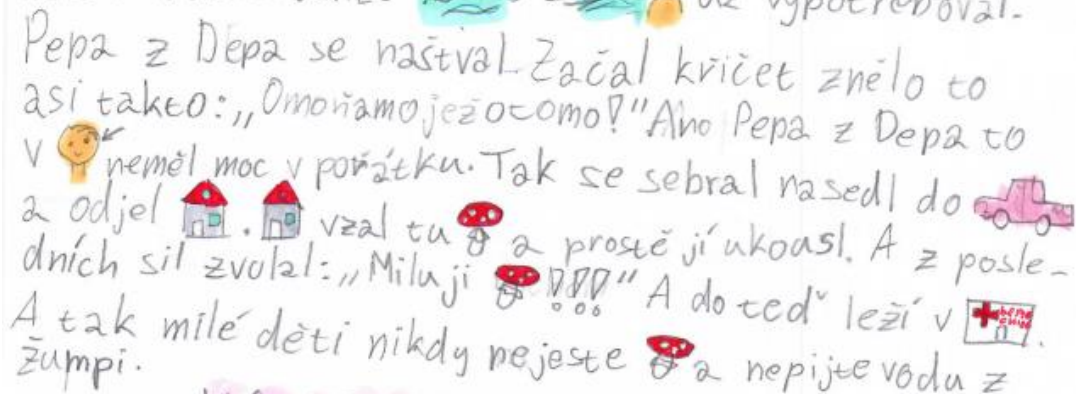 už vypotřeboval.
Pepa z Depa se naštval. Začal křičet znělo to
asi takto:„Omoňamoježotomo!"Ano Pepa z Depa to
v neměl moc v pořátku. Tak se sebral nasedl do
a odjel . vzal tu a prostě jí ukousl. A z posle-
dních sil zvolal:„Miluji !!!!" A do teď leží v .
A tak milé děti nikdy nejeste a nepijte vodu z
žumpi.